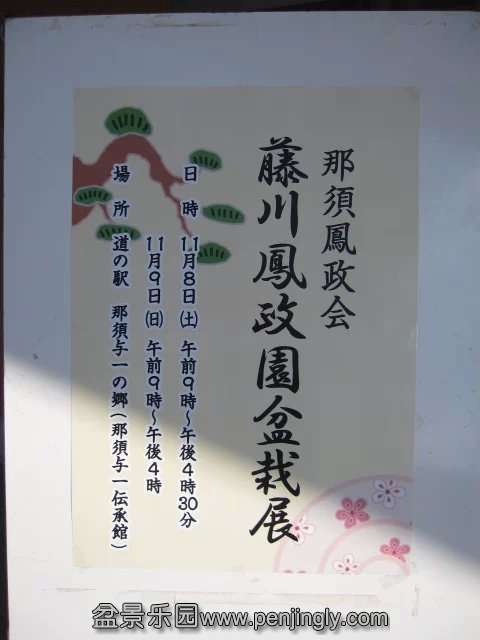 那須鳳政会
藤川鳳政園盆栽展
日時 11月8日(土) 午前9時～午後4時30分
11月9日(日) 午前9時～午後4時
場所 道の駅 那須与一の郷(那須与一伝承館)
盆景乐园www.penjingly.com